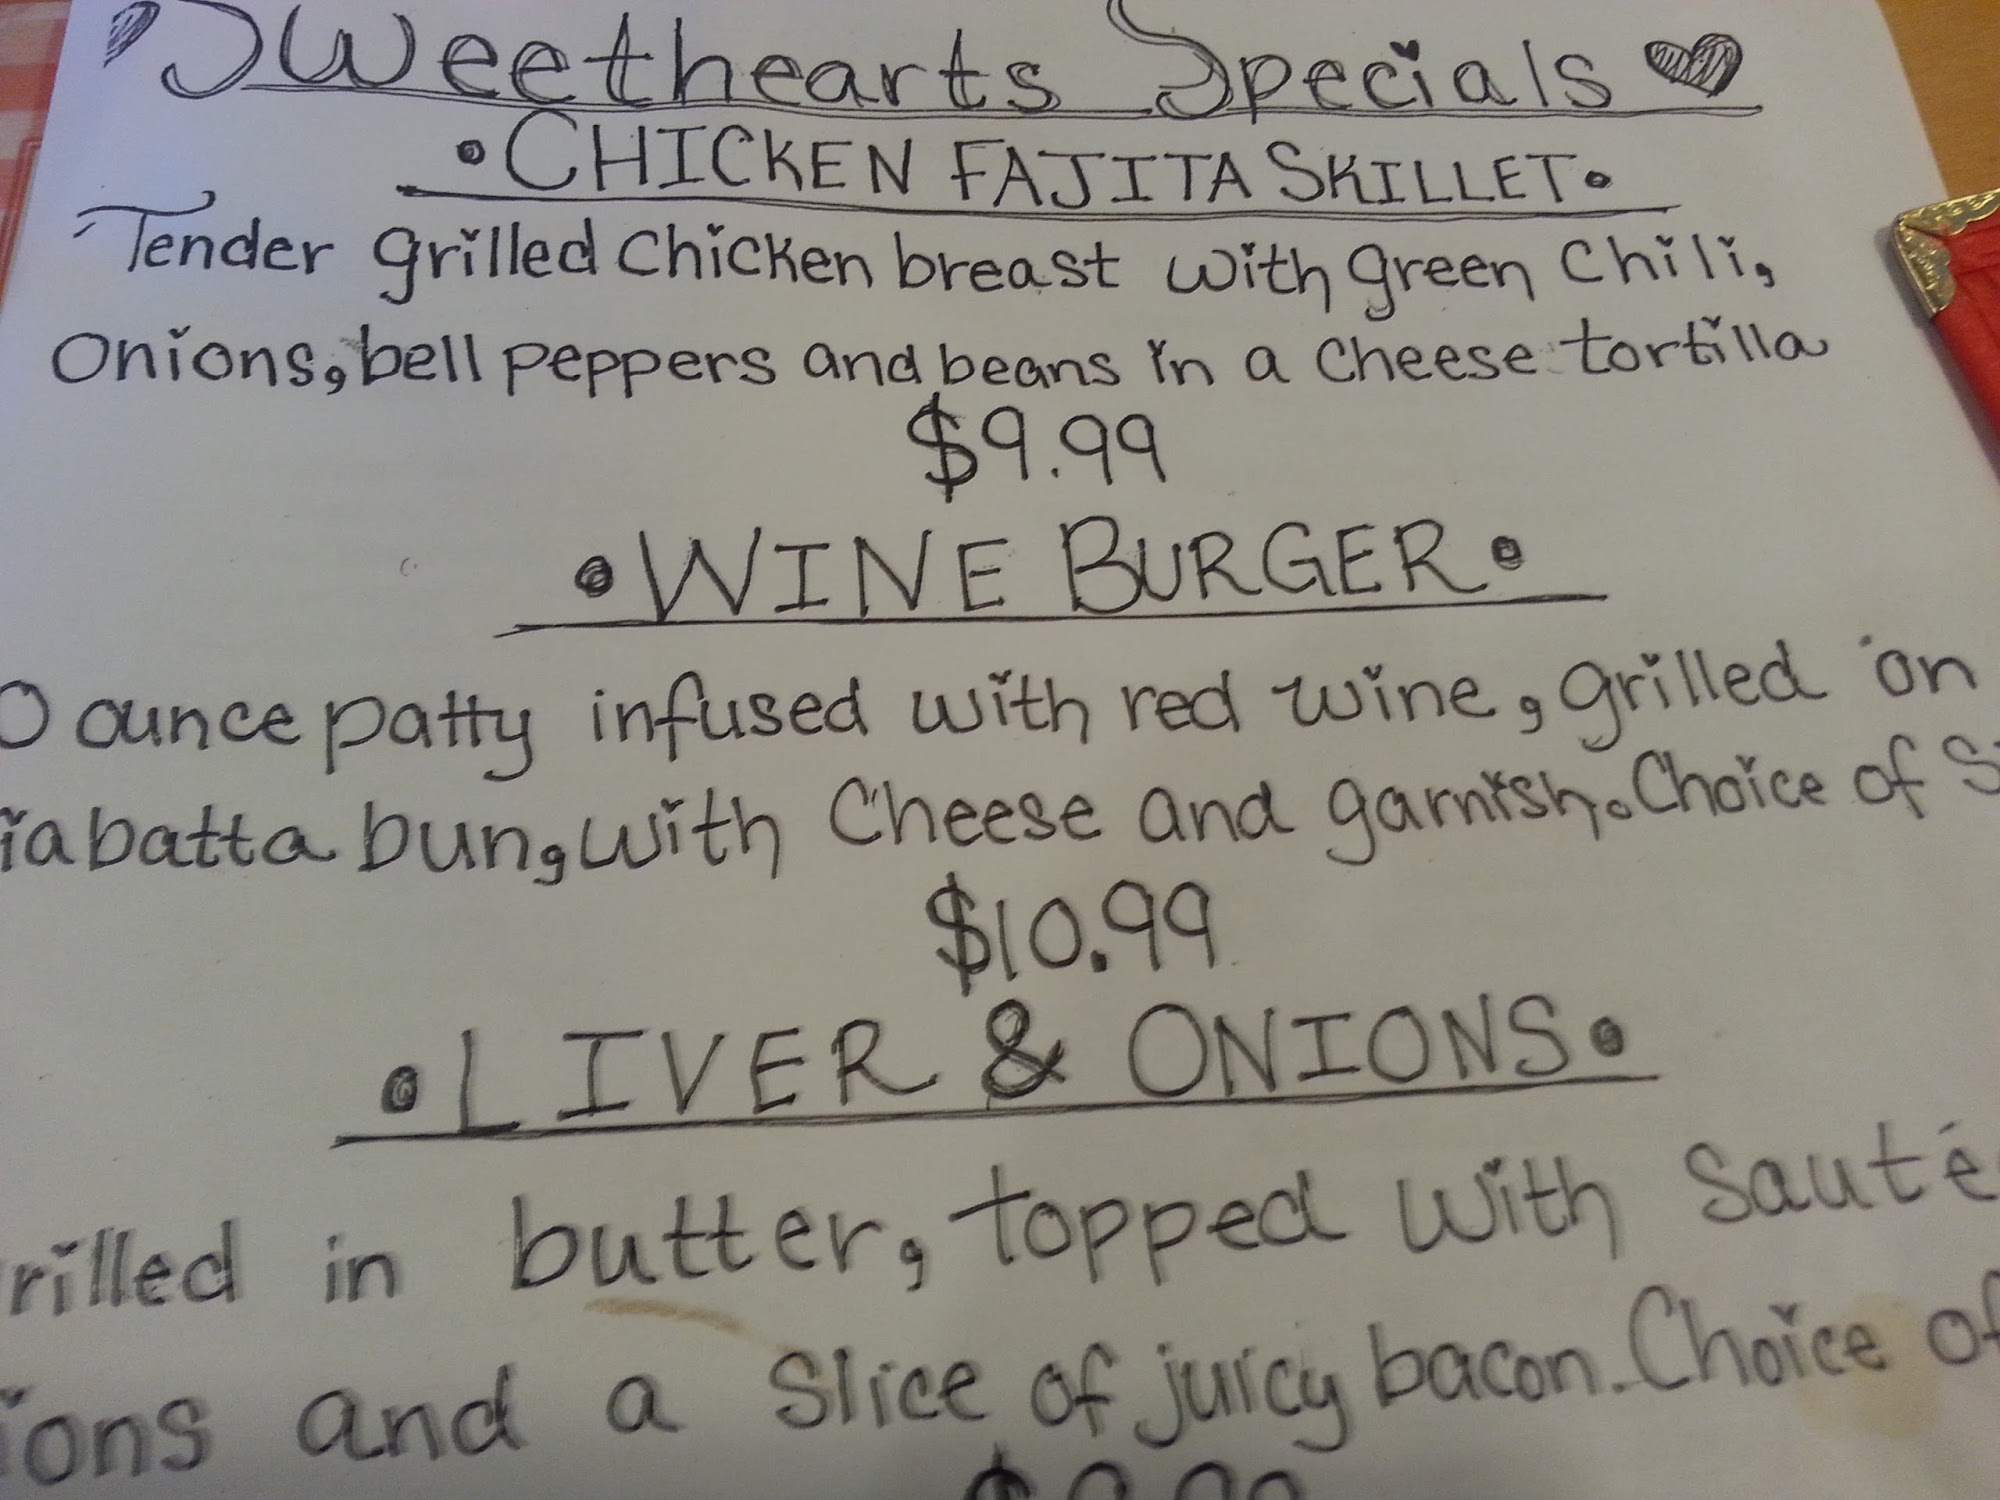 Sweethearts Specials
• CHICKEN FAJITA SKILLET •
Tender grilled chicken breast with green chili,
onions, bell peppers and beans in a cheese tortilla
$9.99
• WINE BURGER •
0 ounce patty infused with red wine, grilled on
iabatta bun, with cheese and garnish. Choice of S
$10.99
• LIVER & ONIONS •
rilled in butter, topped with sauté
ions and a slice of juicy bacon. Choice of